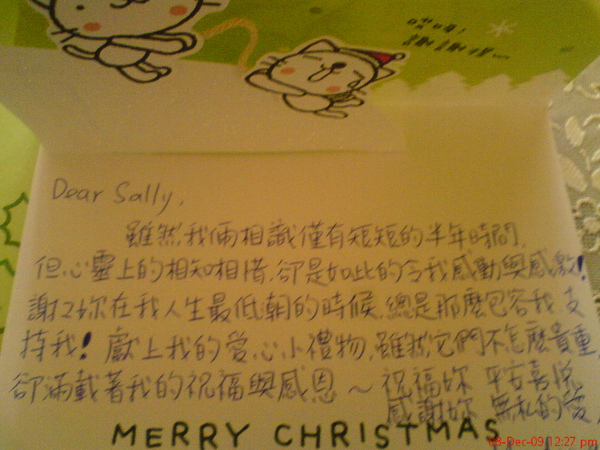 哎呀!
謝謝你...
Dear Sally,
雖然我倆相識僅有短短的半年時間,
但心靈上的相知相惜,卻是如此的令我感動與感激!
謝謝妳在我人生最低潮的時候,總是那麼包容我,支
持我!獻上我的愛心小禮物,雖然它們不怎麼貴重,
卻滿載著我的祝福與感恩~祝福妳 平安喜悅
感謝妳 無私的愛,
MERRY CHRISTMAS
-Dec-09 12:27 pm